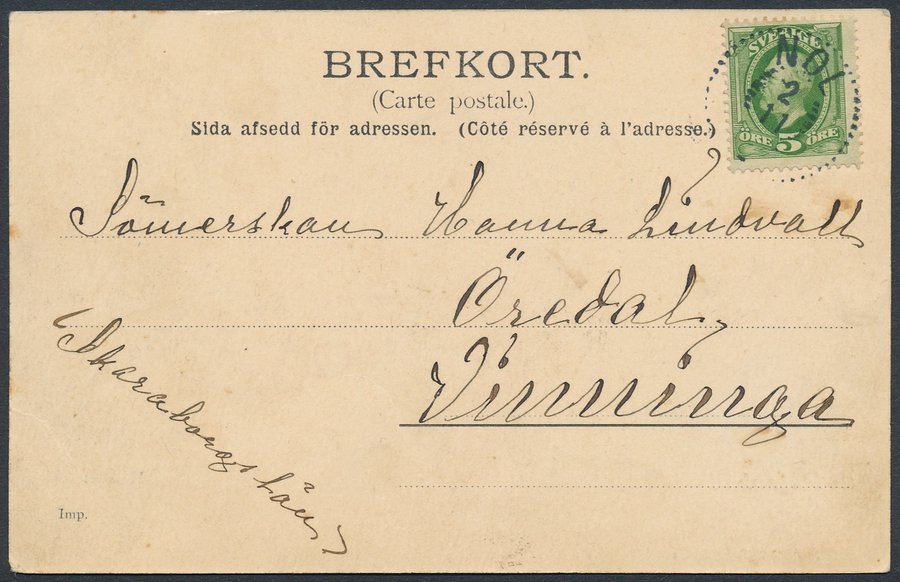 BREFKORT.
(Carte postale.)
Sida afsedd för adressen. (Côté réservé à l'adresse.)
SVERIGE
ÖRE 5 ÖRE
NOL
2
11
Sömerskan Hanna Lindvall
Öredal,
Vinninga
Skaraborgs län
Imp.